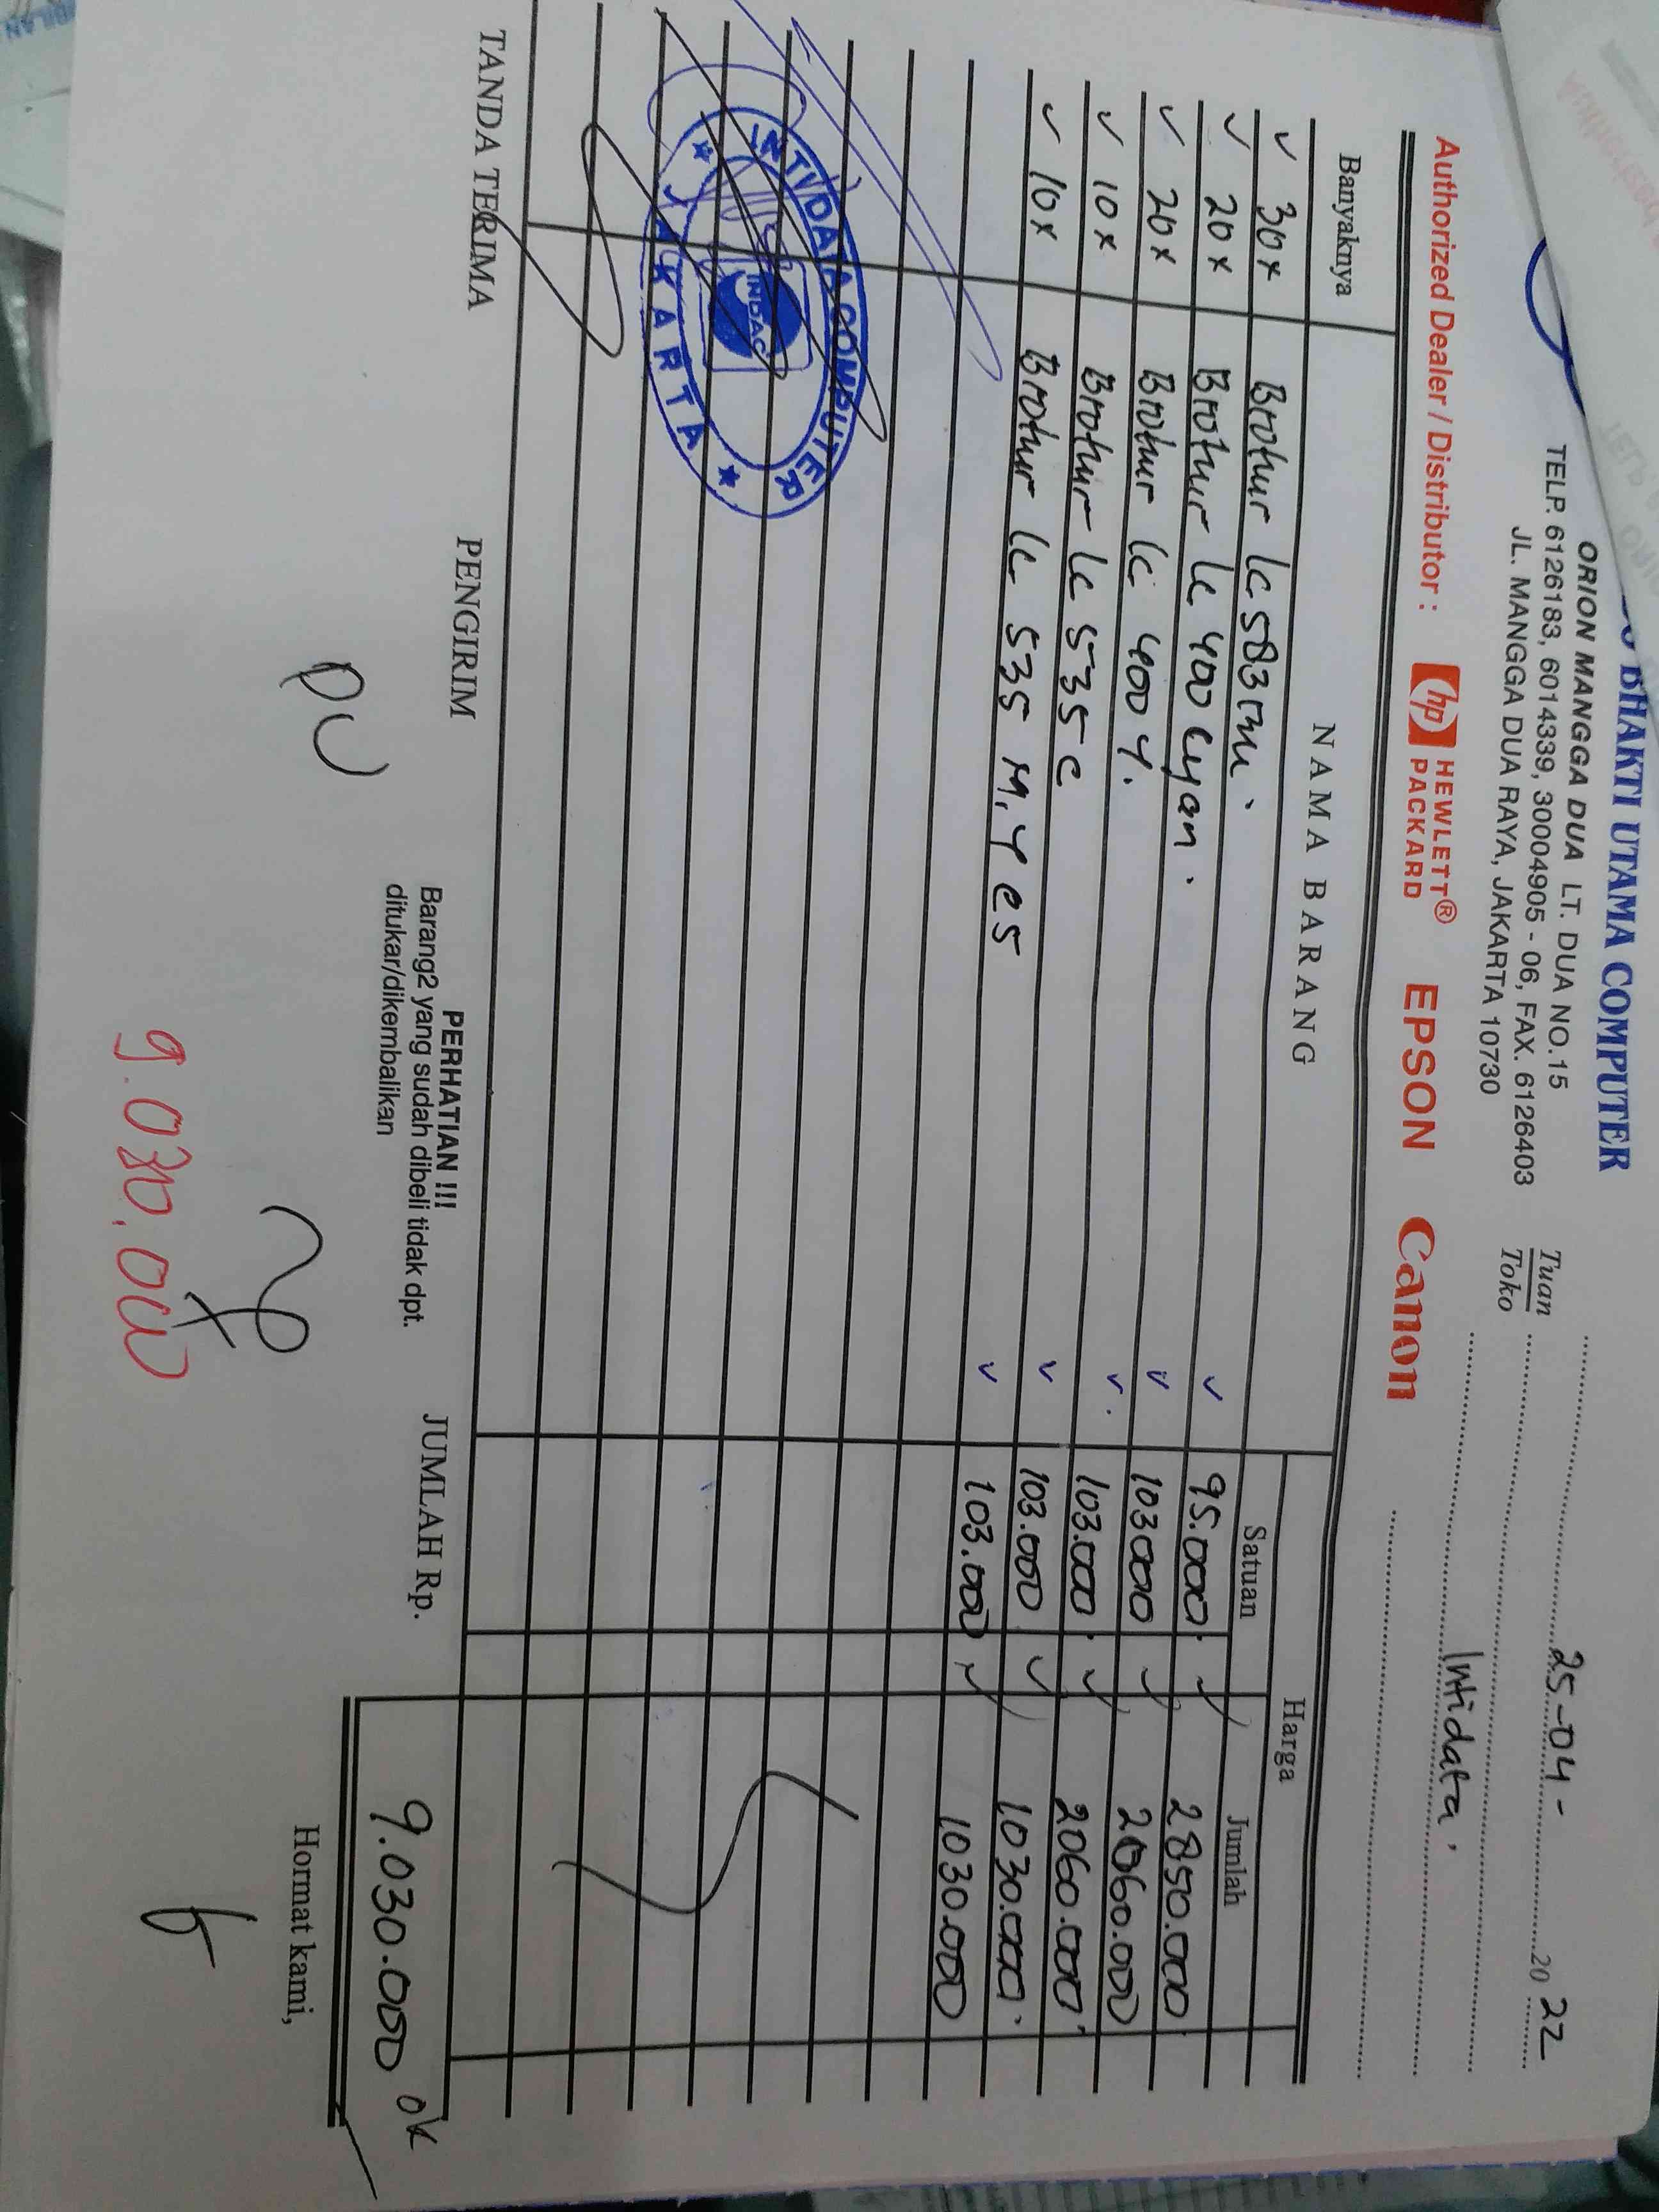 BHAKTI UTAMA COMPUTER
ORION MANGGA DUA LT. DUA NO.15
TELP. 6126183, 6014339, 30004905 - 06, FAX. 6126403
JL. MANGGA DUA RAYA, JAKARTA 10730
25-04- 2022
Tuan
Toko
Intidata.
Authorized Dealer / Distributor : hp HEWLETT® PACKARD EPSON Canon
Banyaknya NAMA BARANG Harga
Satuan Jumlah
✓ 30x Brother lc 583 ✓ 95.000 ✓ 2850.000
✓ 20x Brother lc 400 cyan. ✓ 103000 ✓ 2060.000
✓ 20x Brother lc 400 Y. ✓ 103.000 ✓ 2060.000
✓ 10x Brother lc 535 c ✓ 103.000 ✓ 1030.000
✓ 10x Brother lc 535 M, Y ✓ 103.000 ✓ 1030.000
INTIDATA COMPUTER
INDAC
★ JAKARTA ★
TANDA TERIMA PENGIRIM
PERHATIAN !!!
Barang2 yang sudah dibeli tidak dpt.
ditukar/dikembalikan
JUMLAH Rp. 9.030.000 ok
Hormat kami,
9.030.000